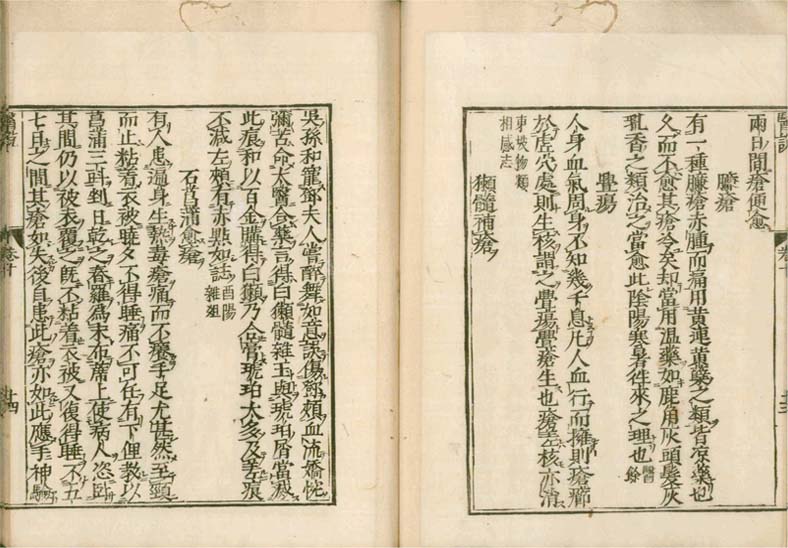 兩日間瘡便愈
臁瘡
有一種臁瘡赤腫而痛用黃連黃蘗之類皆凉藥也
久而不愈其瘡冷矣却當用溫藥如鹿角灰頭髮灰
乳香之類治之當愈此陰陽寒暑徃來之理也醫餘
疊瘍
人身血氣周身不知幾千息凡人血行而擁則瘡癤
於虛穴處則生核謂之疊瘍疊瘡生也瘡去核亦消
東坡物類
相感志
獺髓補瘡
醫說
卷十
十三
吳孫和寵鄧夫人嘗醉舞如意誤傷鄧頰血流嬌惋
彌苦命太醫合藥言得白獺髓雜玉與琥珀屑當滅
此痕和以百金購得白獺乃合膏琥珀太多及差痕
不減左頰有赤點如誌酉陽
雜俎
石菖蒲愈瘡
有人患遍身生熱毒瘡痛而不癢手足尤甚然至頸
而止粘着衣被曉夕不得睡痛不可任有下俚教以
菖蒲三斗剉日乾之舂羅爲末布席上使病人恣臥
其間仍以被衣覆之既不粘着衣被又復得睡不五
七日之間其瘡如失後自患此瘡亦如此應手神驗
醫說
卷十
十四